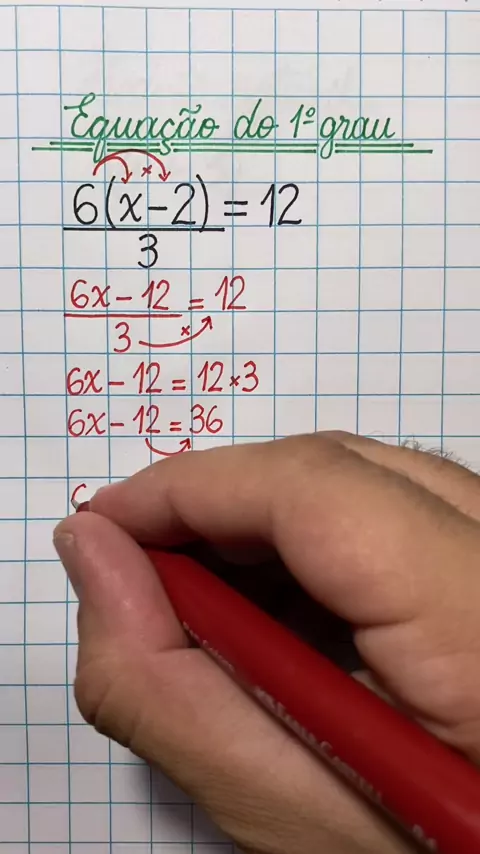 Equação do 1º grau
6(x-2) = 12
3
×
6x - 12 = 12
3
×
6x - 12 = 12 × 3
6x - 12 = 36